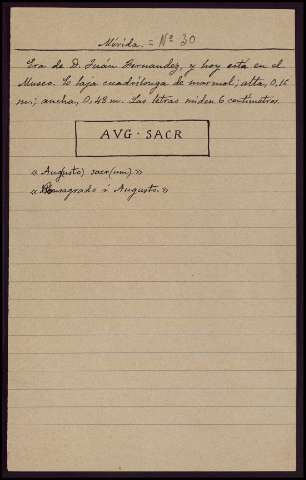 Mérida. = Nº 30
Era de D. Juán Fernandez, y hoy está en el
Museo. Es baja cuadrilonga de marmol; alta, 0,16
m.; ancha, 0,48 m. Las letras miden 6 centímetros.
AVG · SACR
«Aug(usto) sacr(um).»
«Consagrado á Augusto.»